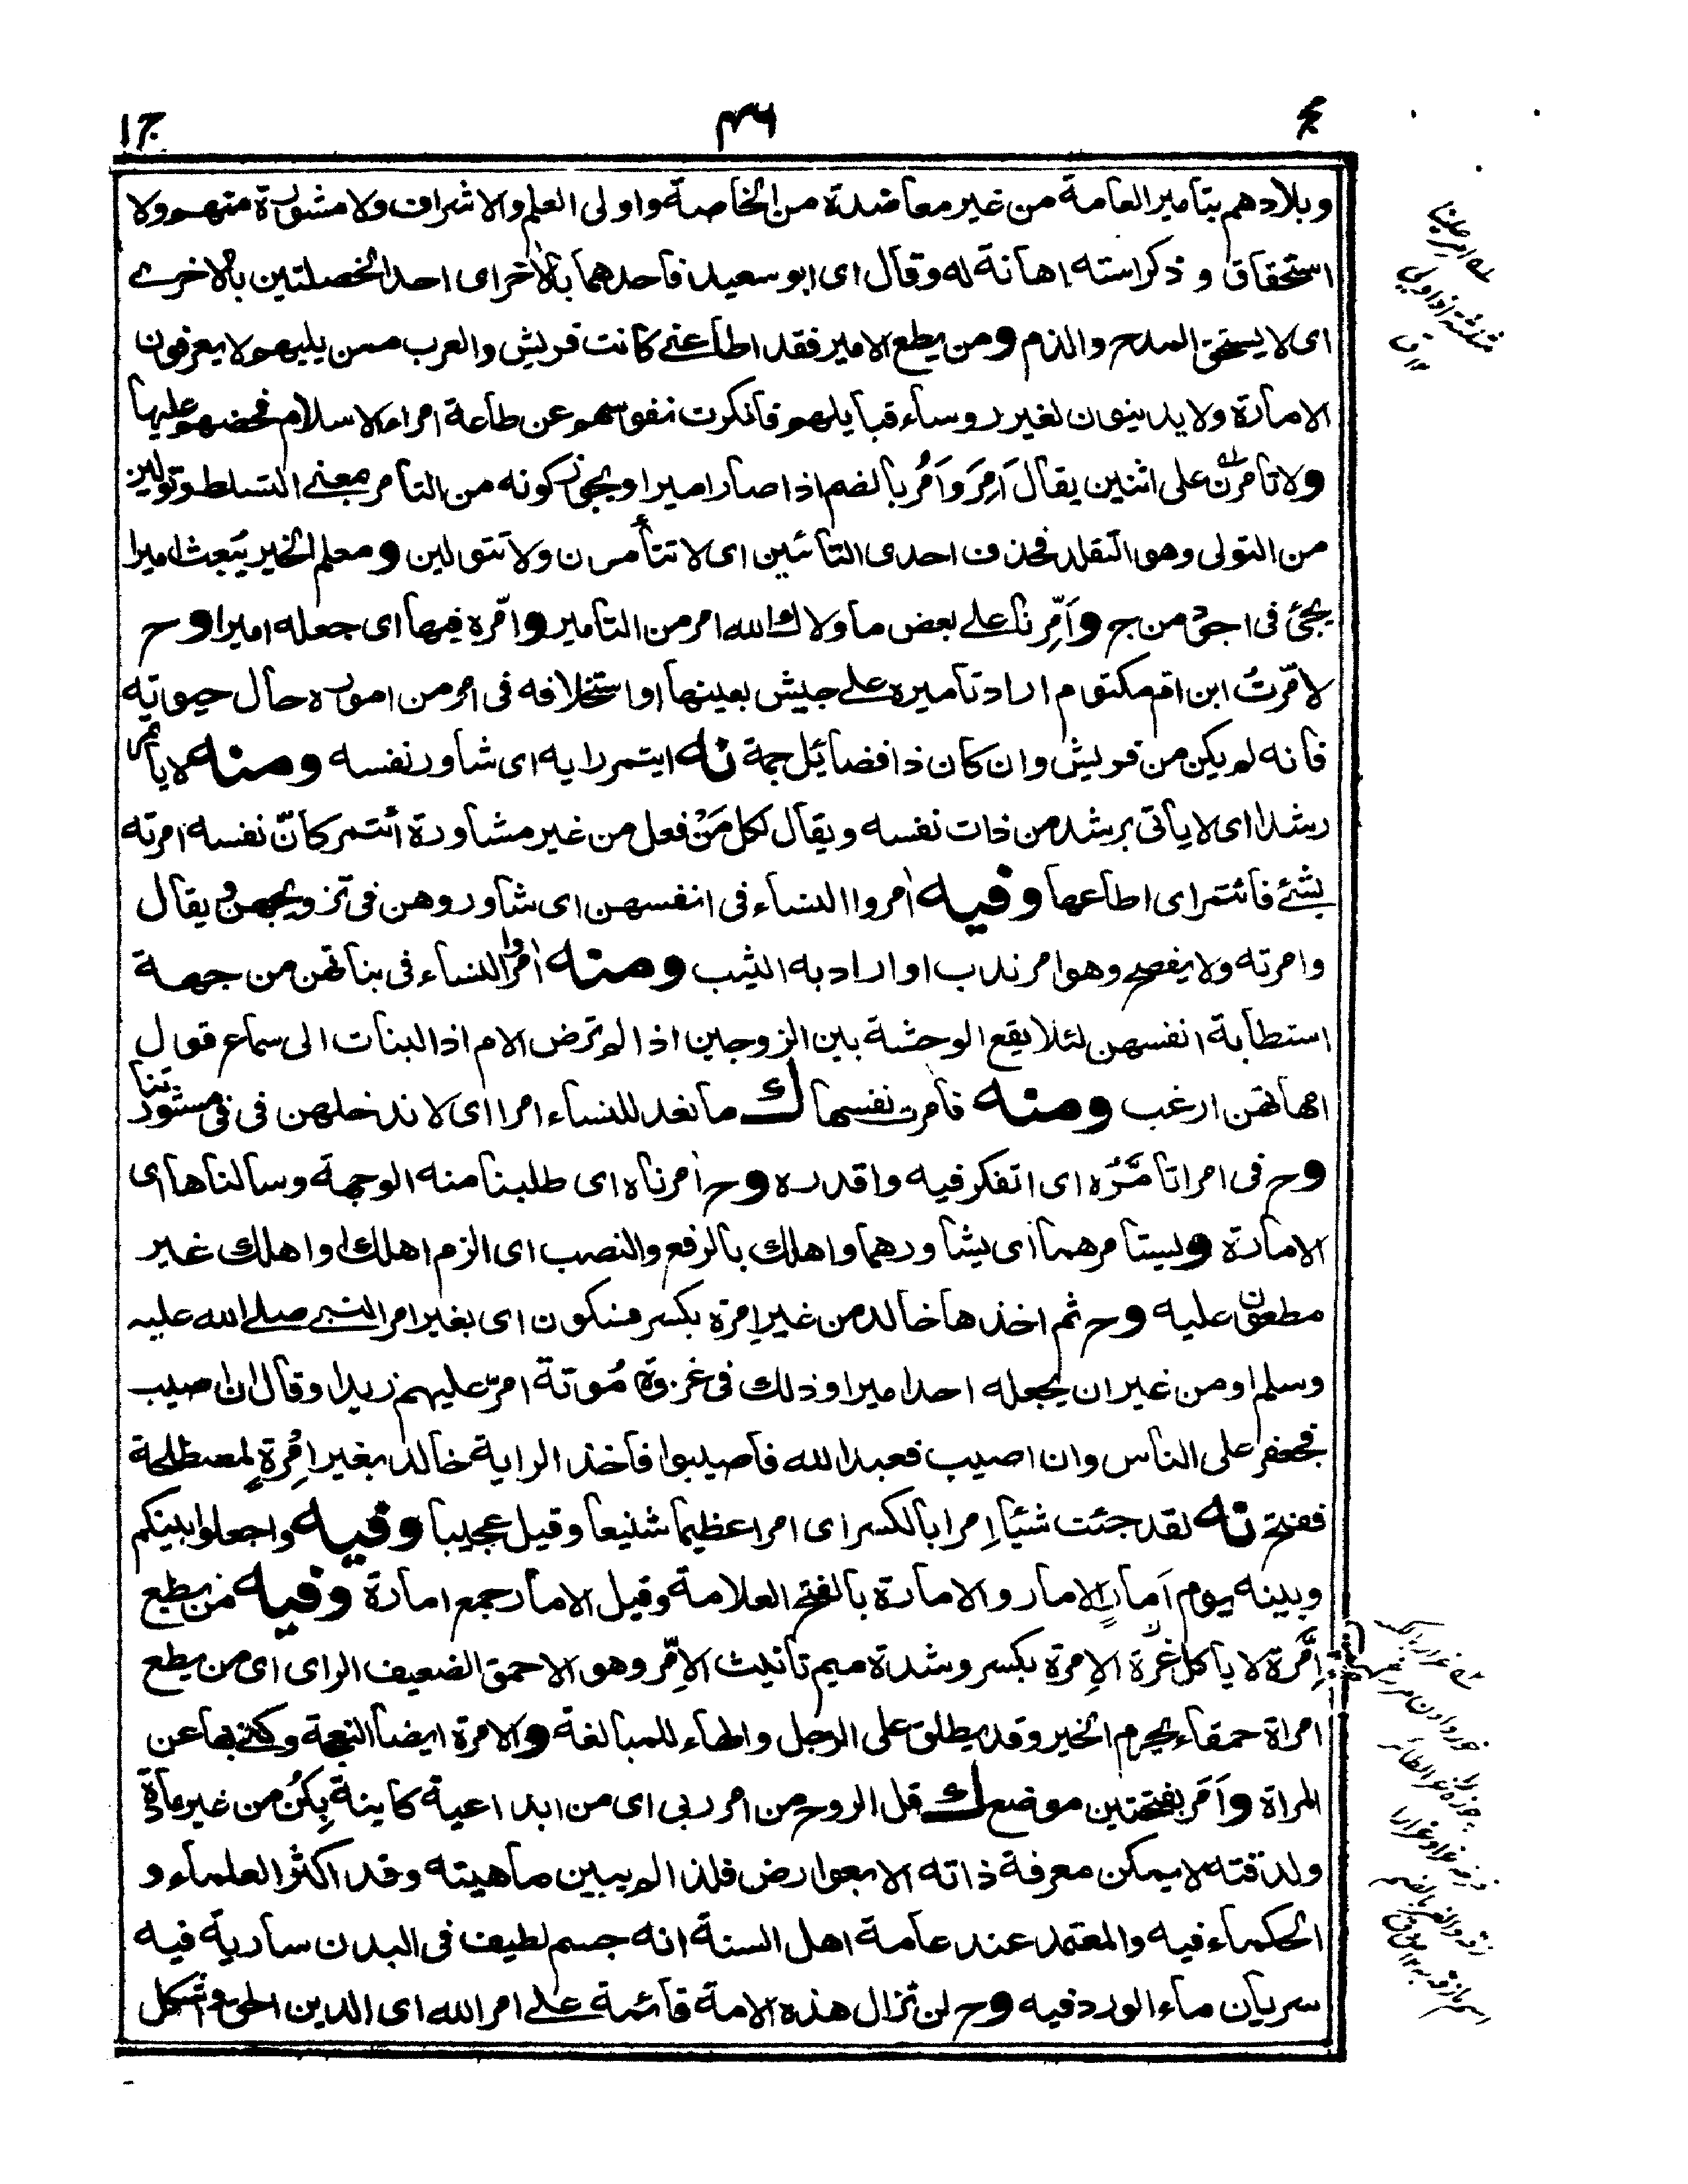 ج ١
٤٦
وبلادهم بتامير العامة من غير معاضدة من الخاصة واولى العلم والاشراف ولا مشورة منهم ولا
استحقاق وذكر استه اهانة له وقال اى ابو سعيد فاحدهما بالاخر اى احد الخصلتين بالاخرى
اى لا يستحق المدح والذم ومن يطع الامير فقد اطاعنى كانت قريش والعرب ممن يليهم لا يعرفون
الامارة ولا يدينون لغير روساء قبايلهم فانكرت نفوسهم عن طاعة امراء الاسلام فحضهم عليها
ولا تأمرن على اثنين يقال اَمِرَ واَمُر بالضم اذا صار اميرا ويجوز كونه من التأمر بمعنى التسلط وتولين
من التولى وهو التقلد فحذف احدى التائين اى لا تتأمرن ولا تتولين ومعلم الخير يبعث اميرا
يجئ فى اجود من ج واَمِّرنا على بعض ما ولاك الله امر من التامير وامّره فيها اى جعله اميرا وح
لامّرتُ ابن ام مكتوم اراد تاميره على جيش بعينها او استخلافه فى امر من اموره حال حيوته
فانه لم يكن من قريش وان كان ذا فضائل جمة نه ايتمر رايه اى شاور نفسه ومنه لا ياتمر
رشدا اى لا ياتى برشد من ذات نفسه ويقال لكل مَنْ فعل من غير مشاورة ائتمر كانّ نفسه امرته
بشئ فائتمر اى اطاعها وفيه اٰمروا النساء فى انفسهن اى شاوروهن فى تزويجهن ويقال
وامرته ولا يفصح وهو امر ندب او اراد به الثيب ومنه اٰمروا النساء فى بناتهن من جهة
استطابة انفسهن لئلا يقع الوحشة بين الزوجين اذا لم ترض الام اذ البنات الى سماع قول
امهاتهن ارغب ومنه فآمرت نفسها ك ما نعد للنساء امرا اى لا ندخلهن فى مشورتنا
وح فى امر اتأمّره اى اتفكر فيه واقدره وح اٰمرناه اى طلبنا منه الوجهة وسالناها اى
الامارة ويستامرهما اى يشاورهما واهلك بالرفع والنصب اى الزم اهلك او اهلك غير
مطعون عليه وح ثم اخذها خالد من غير اِمرة بكسر فسكون اى بغير امر النبى صلى الله عليه
وسلم او من غير ان يجعله احد اميرا وذلك فى غزوة مُوتة امرّ عليهم زيدا وقال ان اصيب
فجعفر على الناس وان اصيب فعبد الله فاصيبوا فاخذ الراية خالد بغير اِمْرةٍ لمصطلحة
ففتح نه لقد جئت شيئا اِمرا بالكسر اى امرا عظيما شنيعا وقيل عجيبا وفيه واجعلوا بينكم
وبينه يوم اَمارٍ الامار والامارة بالفتح العلامة وقيل الامار جمع امارة وفيه من يطع
اِمَّرة لا ياكل غرة الاِمرة بكسر وشدة ميم تانيث الاِمّر وهو الاحمق الضعيف الراى اى من يطع
امراة حمقاء يحرم الخير وقد يطلق على الرجل والهاء للمبالغة والامرة ايضا النعجة وكنى بها عن
المراة واَمَر بفتحتين موضع ك قل الروح من امر ربى اى من ابداعية كاينة بِكُن من غير مادةٍ
ولدقته لا يمكن معرفة ذاته الا بعوارض فلذا لم يبين ماهيته وقد اكثر العلماء و
الحكماء فيه والمعتمد عند عامة اهل السنة انه جسم لطيف فى البدن سارية فيه
سريان ماء الورد فيه وح لن تزال هذه الامة قائمة على امر الله اى الدين الحق واشكل